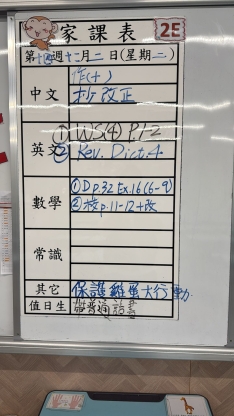 家課表 2E
第十四週十二月二日(星期二)
中文 作(十)
抄改正
英文 ①WS(4) P.1-2
② Rev. Dict.4
數學 ①Dp.32 Ex.16(6-9)
②校p.11-12+改
常識
其它 保護雞蛋大行動
值日生 普通話